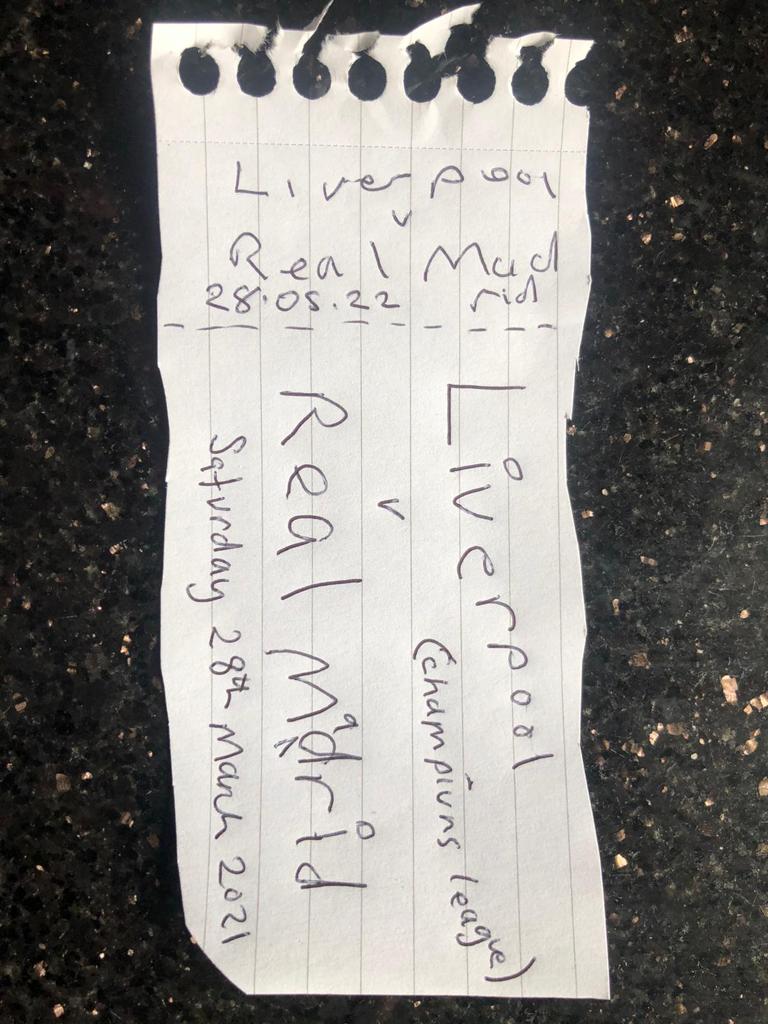 Liverpool
v
Real Mad
rid
28.05.22
Liverpool
(champions league)
v
Real Madrid
Saturday 28th March 2021